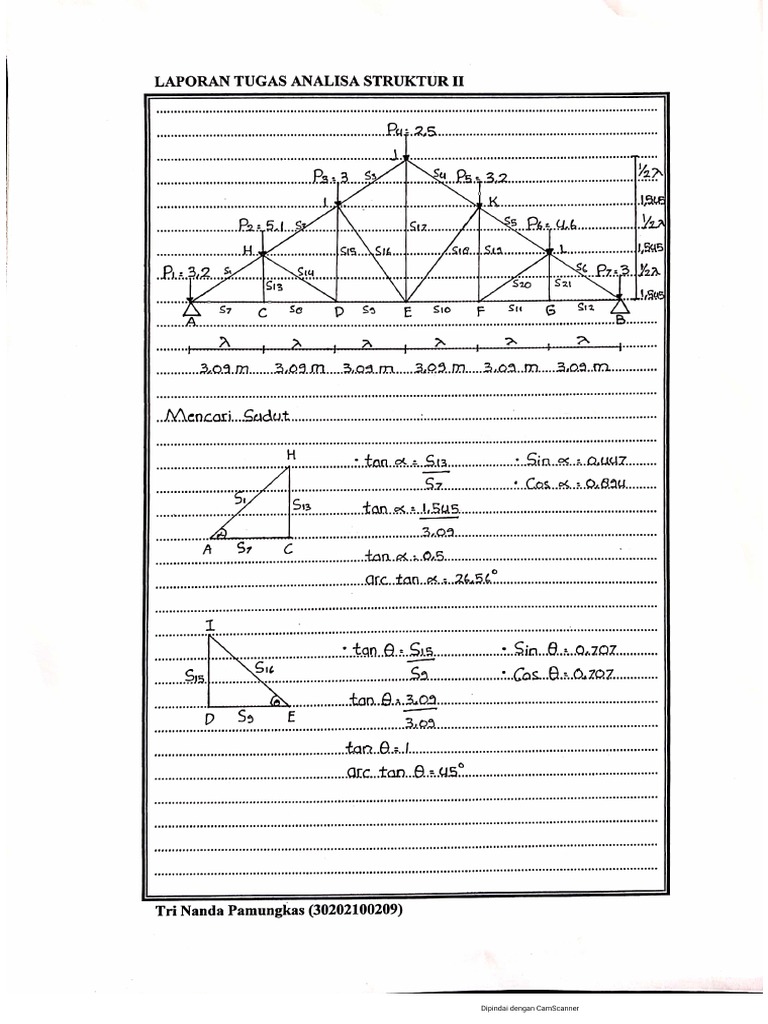 LAPORAN TUGAS ANALISA STRUKTUR II
P4 = 2,5
J
½ λ
P3 = 3 S3 S4 P5 = 3,2
I K 1,545
P2 = 5,1 S2 S17 S5 P6 = 4,6 ½ λ
H S15 S16 S18 S19 L 1,545
P1 = 3,2 S1 S14 S6 P7 = 3 ½ λ
S13 S20 S21
1,545
A S7 C S8 D S9 E S10 F S11 G S12 B
λ λ λ λ λ λ
3,09 m 3,09 m 3,09 m 3,09 m 3,09 m 3,09 m
Mencari Sudut
H
S1 S13
A S7 C
• tan α = S13
S7
tan α = 1,545
3,09
tan α = 0,5
arc tan α = 26,56°
• Sin α = 0,447
• Cos α = 0,894
I
S15 S16
D S9 θ E
• tan θ = S15
S9
tan θ = 3,09
3,09
tan θ = 1
arc tan θ = 45°
• Sin θ = 0,707
• Cos θ = 0,707
Tri Nanda Pamungkas (30202100209)
Dipindai dengan CamScanner